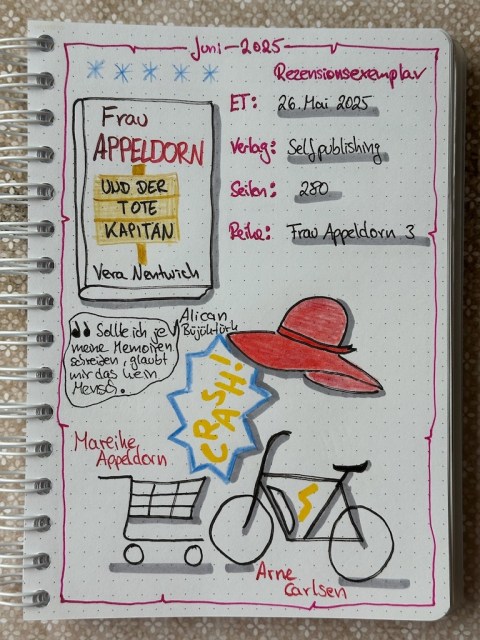 Juni - 2025
Rezensionsexemplar
Frau
APPELDORN
UND DER
TOTE
KAPITÄN
Vera Nentwich
ET: 26. Mai 2025
Verlag: Selfpublishing
Seiten: 280
Reihe: Frau Appeldorn 3
" Sollte ich je
meine Memoiren
schreiben, glaubt
mir das kein
Mensch.
Alican
CRASH!
Mareike
Appeldorn
Arne
Carlsen